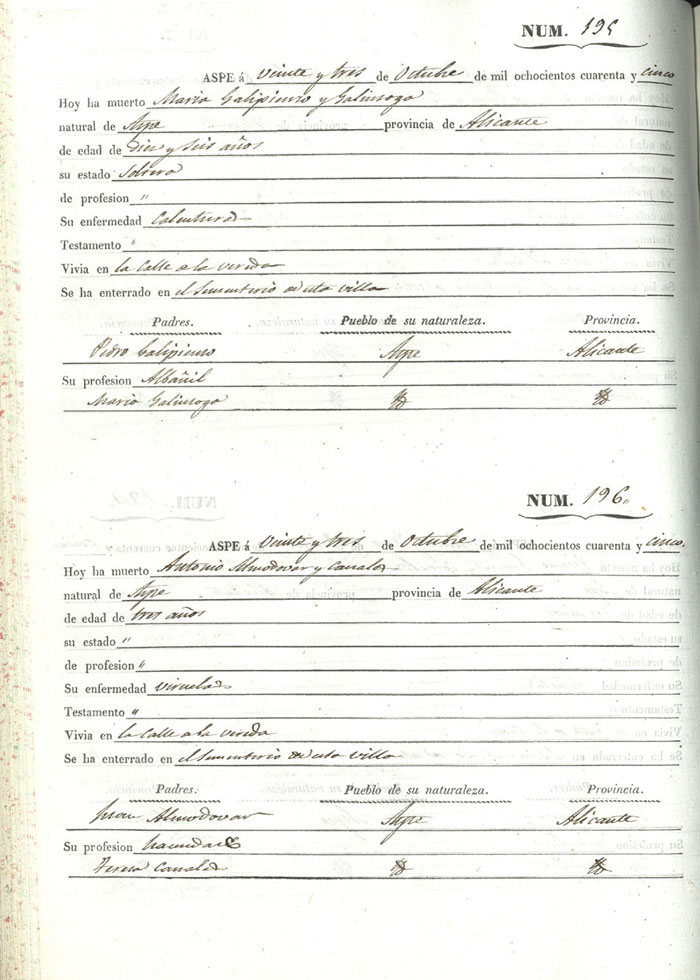 NUM. 195
ASPE á Veinte y tres de Octubre de mil ochocientos cuarenta y cinco
Hoy ha muerto Maria Galipienso y Galinsoga
natural de Aspe provincia de Alicante
de edad de Diez y seis años
su estado Soltera
de profesion "
Su enfermedad Calenturas
Testamento "
Vivia en la Calle a la vereda
Se ha enterrado en el Sementerio de esta villa
Padres. Pueblo de su naturaleza. Provincia.
Pedro Galipienso Aspe Alicante
Su profesion Albañil
Maria Galinsoga
NUM. 196
ASPE á Veinte y tres de Octubre de mil ochocientos cuarenta y cinco.
Hoy ha muerto Antonio Almodovar y Canals
natural de Aspe provincia de Alicante
de edad de tres años
su estado "
de profesion "
Su enfermedad viruelas
Testamento "
Vivia en la Calle a la vereda
Se ha enterrado en el Sementerio de esta villa
Padres. Pueblo de su naturaleza. Provincia.
Almodovar Aspe Alicante
Su profesion
Teresa Canals